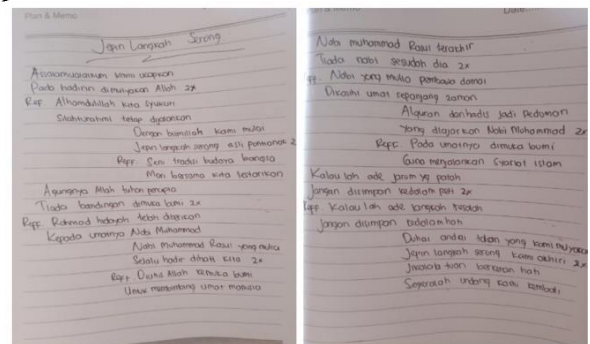 Plan & Memo
Jepin Langkah Serong
Assalamualaikum kami ucapkan
Pada hadirin dimulyakan Allah 2x
Ref. Alhamdulillah kita syukuri
Silahturahmi tetap dijalankan
Dengan bismillah kami mulai
Jepin langkah serong asli pontianak 2
Reff. Seni tradisi budaya bangsa
Mari bersama kita lestarikan
Agungnya Allah tuhan pencipta
Tiada bandingan dimuka bumi 2x
Reff. Rahmad hidayah telah diberikan
Kepada umatnya Nabi Muhammad
Nabi Muhammad Rasul yang mulia
Selalu hadir dihati kita 2x
Reff. Diutus Allah kemuka bumi
Untuk membimbing umat manusia
Nabi muhammad Rasul terakhir
Tiada nabi sesudah dia 2x
Reff. Nabi yang mulia pembawa damai
Dikasihi umat sepanjang zaman
Alquran dan hadis jadi Pedoman
Yang diajarkan Nabi Muhammad 2x
Reff. Pada umatnya dimuka bumi
Guna menjalankan Syariat islam
Kalau lah ade jarum yg patah
Jangan disimpan kedalam peti 2x
Reff Kalau lah ade langkah salah
Jangan disimpan kedalam hati
Duhai andai tolan yang kami mulyakan
Jepin langkah serong kami akhiri 2x
Jikalau tuan berkenan hati
Segeralah undang kami kembali